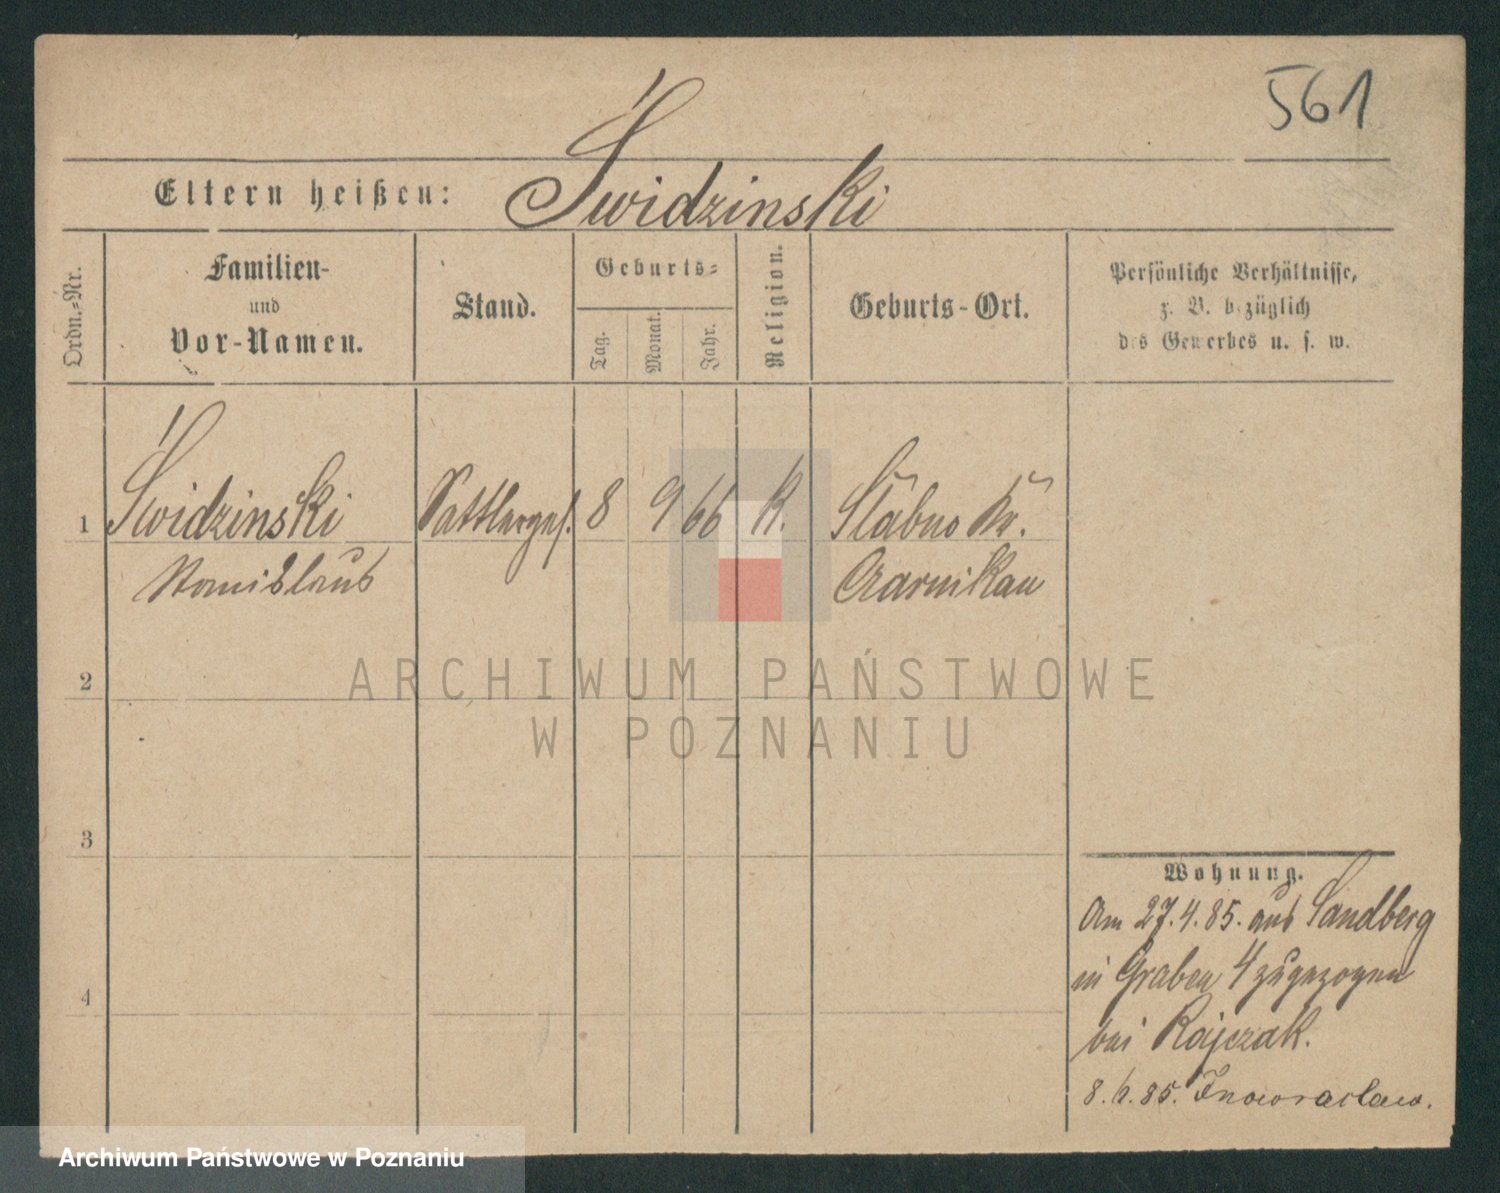 561
Eltern heißen: Świdzinski
Ordn.-Nr.
Familien-
und
Vor-Namen.
Stand.
Geburts-
Tag.
Monat.
Jahr.
Religion.
Geburts-Ort.
Persönliche Verhältnisse,
z. B. bezüglich
des Gewerbes u. s. w.
1 Świdzinski Sattlerges. 8 9 66 K. Kr.
Stanislaus Czarnikau
2
3
4
Wohnung.
Am 27.4.85. aus Sandberg
in Graben 4 zugezogen
bei Rajczak.
8. 85. Inowraclaw.
ARCHIWUM PAŃSTWOWE
W POZNANIU
Archiwum Państwowe w Poznaniu